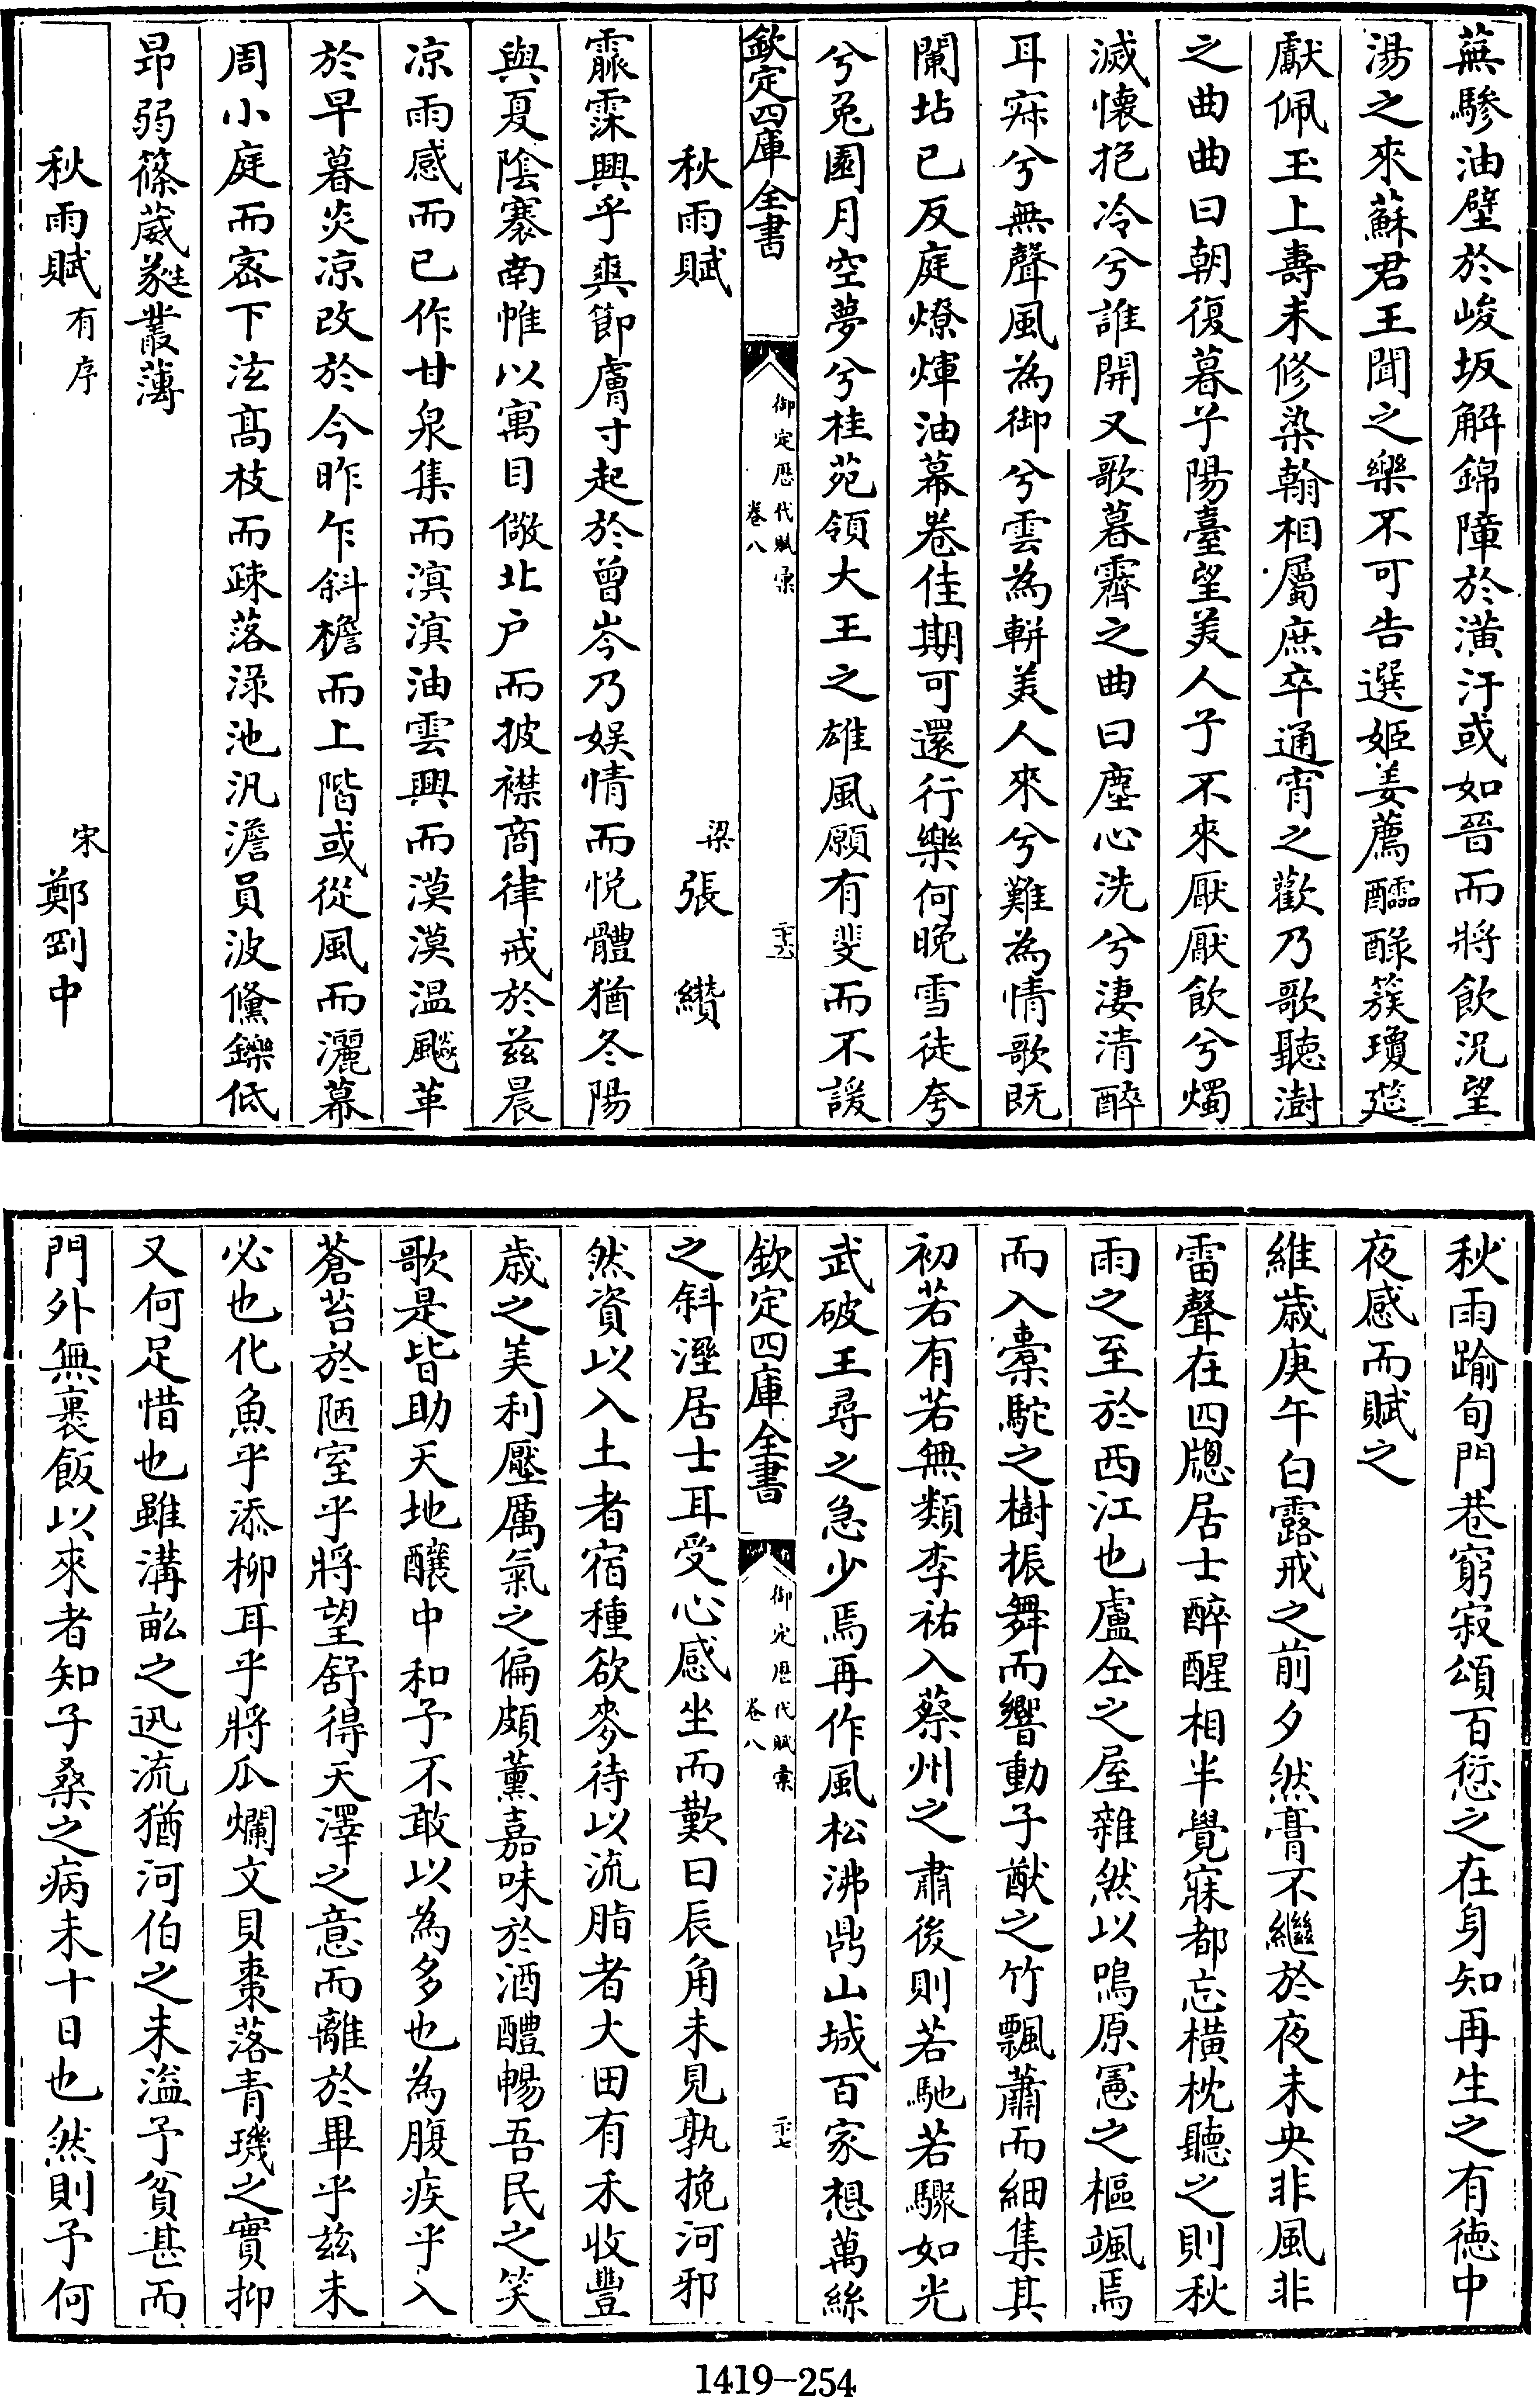 蕪驂油壁於峻坂解錦障於潢汙或如晉而將飲況望
湯之來蘇君王聞之樂不可告選姬姜薦醽醁簇瓊筵
獻佩玉上壽未修染翰相屬庶卒通宵之歡乃歌聽澍
之曲曲曰朝復暮兮陽臺望美人兮不來厭厭飲兮燭
滅懷抱冷兮誰開又歌暮霽之曲曰塵心洗兮淒清醉
耳寐兮無聲風為御兮雲為軿美人來兮難為情歌既
闌坫已反庭燎煇油幕卷佳期可還行樂何晚雪徒夸
兮兔園月空夢兮桂苑領大王之雄風願有斐而不諼
欽定四庫全書
御定歷代賦彙
卷八
二十六
秋雨賦
梁張纘
霢霂興乎爽節膚寸起於曾岑乃娱情而悅體猶冬陽
與夏陰褰南帷以寓目儆北户而披襟商律戒於兹晨
凉雨感而已作甘泉集而滇滇油雲興而漠漠温飈革
於早暮炎凉改於今昨乍斜檐而上階或從風而灑幕
周小庭而密下泫高枝而疎落渌池汎澹員波儵鑠低
昻弱篠葳蕤叢薄
秋雨賦有序
宋鄭剛中
秋雨踰旬門巷窮寂頌百愆之在身知再生之有徳中
夜感而賦之
維歳庚午白露戒之前夕然膏不繼於夜未央非風非
雷聲在四牕居士醉醒相半覺寐都忘橫枕聽之則秋
雨之至於西江也盧仝之屋雜然以鳴原憲之樞颯焉
而入橐駝之樹振舞而響動子猷之竹飄蕭而細集其
初若有若無類李祐入蔡州之肅後則若馳若驟如光
武破王尋之急少焉再作風松沸鼎山城百家想萬絲
欽定四庫全書
御定歷代賦彙
卷八
二十七
之斜溼居士耳受心感坐而歎曰辰角未見孰挽河邪
然資以入土者宿種欲麥待以流脂者大田有禾收豐
歳之美利壓厲氣之偏頗薰嘉味於酒醴暢吾民之笑
歌是皆助天地釀中和予不敢以為多也為腹疾乎入
蒼苔於陋室乎將望舒得天澤之意而離於畢乎兹未
必也化魚乎添柳耳乎將瓜爛文貝棗落青璣之實抑
又何足惜也雖溝畝之迅流猶河伯之未溢予貧甚而
門外無裹飯以來者知子桑之病未十日也然則予何
1419-254